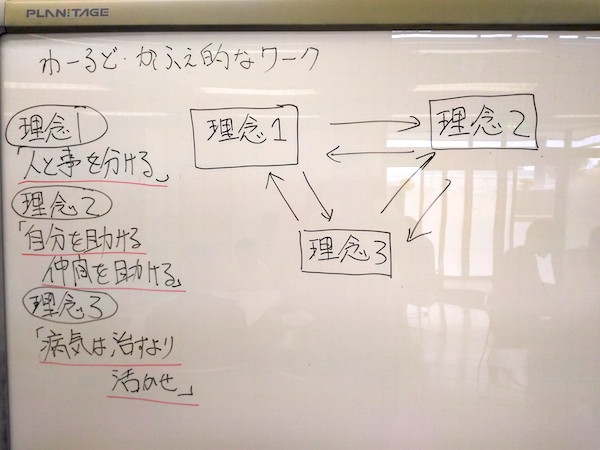 PLAN:TAGE
わーるど・かふぇ的なワーク
理念1
「人と事を分ける」
理念2
「自分を助ける
仲間を助ける」
理念3
「病気は治すより
活かせ」
理念1
理念2
理念3